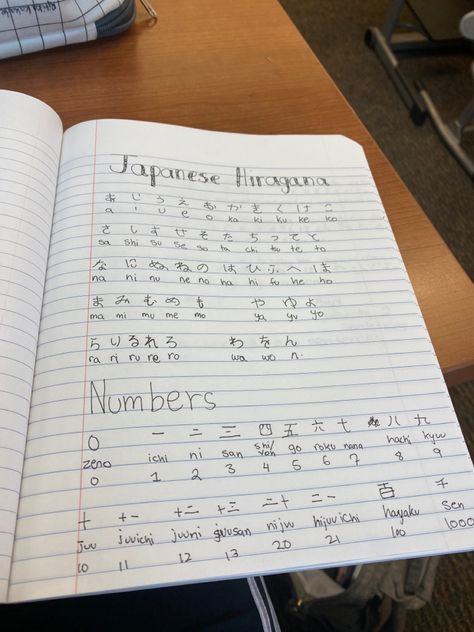 Japanese Hiragana
あ い う え お か き く け こ
a i u e o ka ki ku ke ko
さ し す せ そ た ち っ て と
sa shi su se so ta chi tsu te to
な に ぬ ね の は ひ ふ へ ほ
na ni nu ne no ha hi fu he ho
ま み む め も や ゆ よ
ma mi mu me mo ya yu yo
ら り る れ ろ わ を ん
ra ri ru re ro wa wo n.
Numbers
0 一 二 三 四 五 六 七 八 九
zero ichi ni san shi/yon go roku nana hachi kyuu
0 1 2 3 4 5 6 7 8 9
十 十一 十二 十三 二十 二一 百 千
juu juuichi juuni juusan nijuu nijuuichi hayaku sen
10 11 12 13 20 21 100 1000